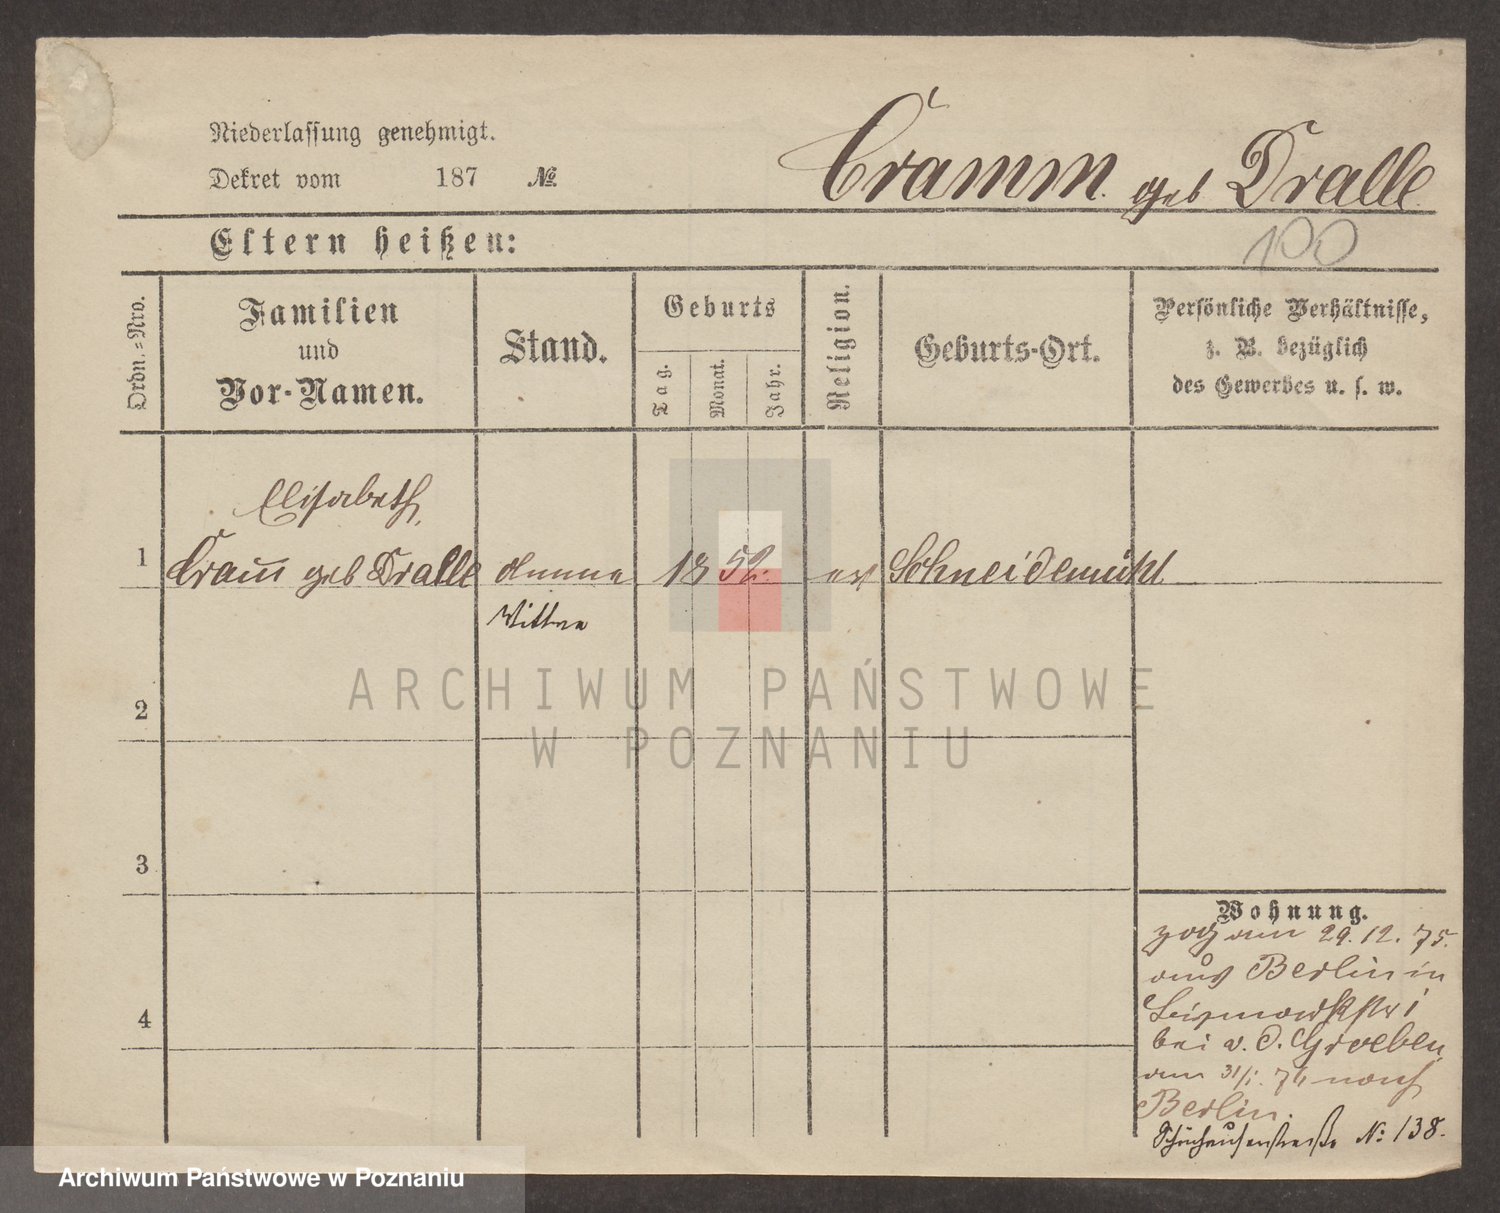 Niederlassung genehmigt.
Dekret vom 187 №
Cramm. geb Dralle
Eltern heißen:
100
Ordn.-Nro.
Familien
und
Vor-Namen.
Stand.
Geburts
Tag.
Monat.
Jahr.
Religion.
Geburts-Ort.
Persönliche Verhältnisse,
z. B. bezüglich
des Gewerbes u. s. w.
Elisabeth
1 Cram̄ geb Dralle Amme 1852. ev Schneidemühl
Wittwe
ARCHIWUM PAŃSTWOWE
W POZNANIU
2
3
4
Wohnung.
zog am 29. 12. 75.
aus Berlin in
Bismarckstr 1
bei v. d. Groeben
am 31/1. 76 nach
Berlin.
N: 138.
Archiwum Państwowe w Poznaniu